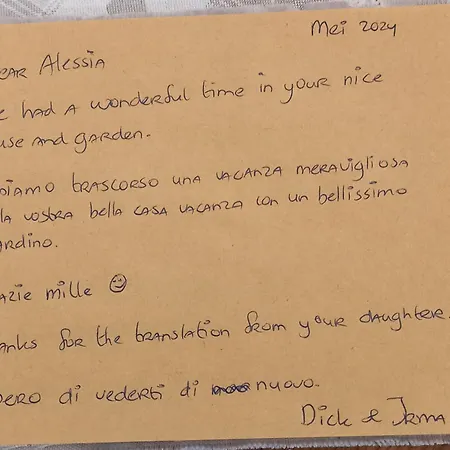 Mei 2024
ear Alessia
e had a wonderful time in your nice
use and garden.
biamo trascorso una vacanza meravigliosa
lla vostra bella casa vacanza con un bellissimo
ardino.
azie mille ☺
anks for the translation from your daughter.
pero di vederti di nuovo.
Dick & Irma